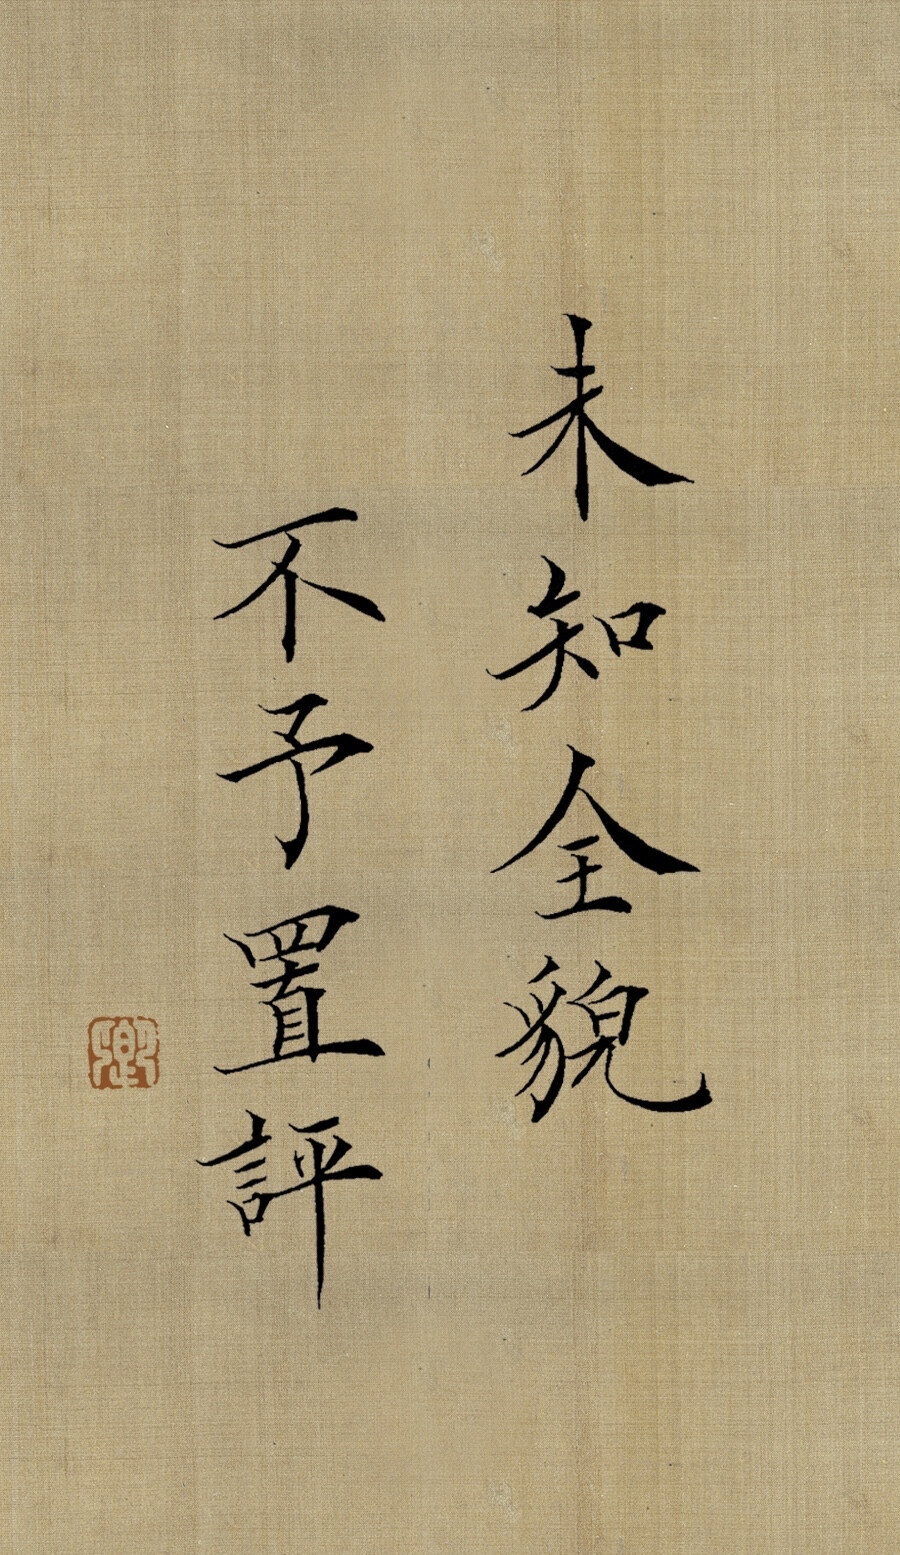 未知全貌
不予置評